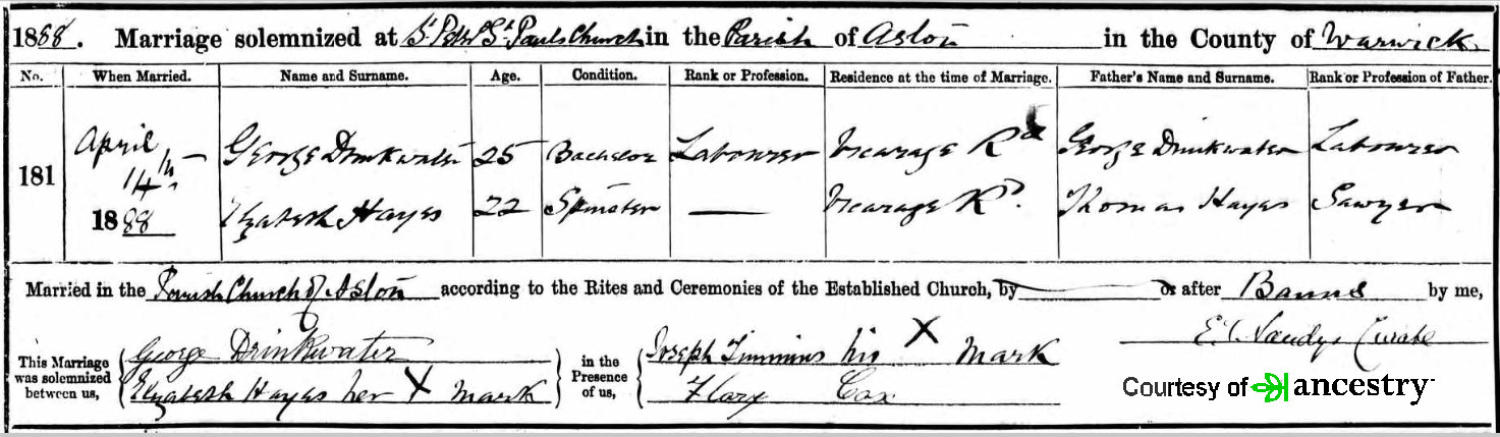 1888. Marriage solemnized at St Peter St Pauls Church in the Parish of Aston in the County of Warwick
No. When Married. Name and Surname. Age. Condition. Rank or Profession. Residence at the time of Marriage. Father's Name and Surname. Rank or Profession of Father.
181 April 14th 1888 George Drinkwater 25 Bachelor Labourer Vicarage Rd George Drinkwater Labourer
Elizabeth Hayes 22 Spinster — Vicarage Rd. Thomas Hayes Sawyer
Married in the Parish Church of Aston according to the Rites and Ceremonies of the Established Church, by or after Banns by me,
This Marriage was solemnized between us, George Drinkwater in the Presence of us, Joseph Timmins his X Mark Curate
Elizabeth Hayes her X Mark Cox
Courtesy of ancestry